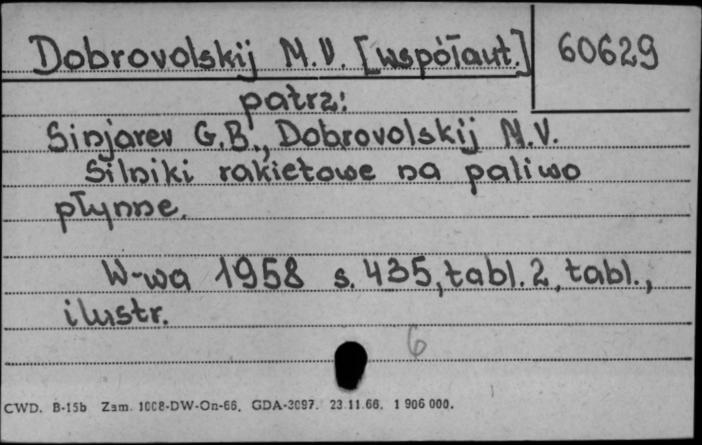 Dobrovolskij M.V. [współaut.] 60629
patrz:
Sinjarev G.B., Dobrovolskij M.V.
Silniki rakietowe na paliwo
płynne.
W-wa 1958 s. 435, tabl. 2, tabl.,
ilustr.
6
CWD. B-15b Zam. 1008-DW-On-66. GDA-3097. 23.11.66. 1 906 000.